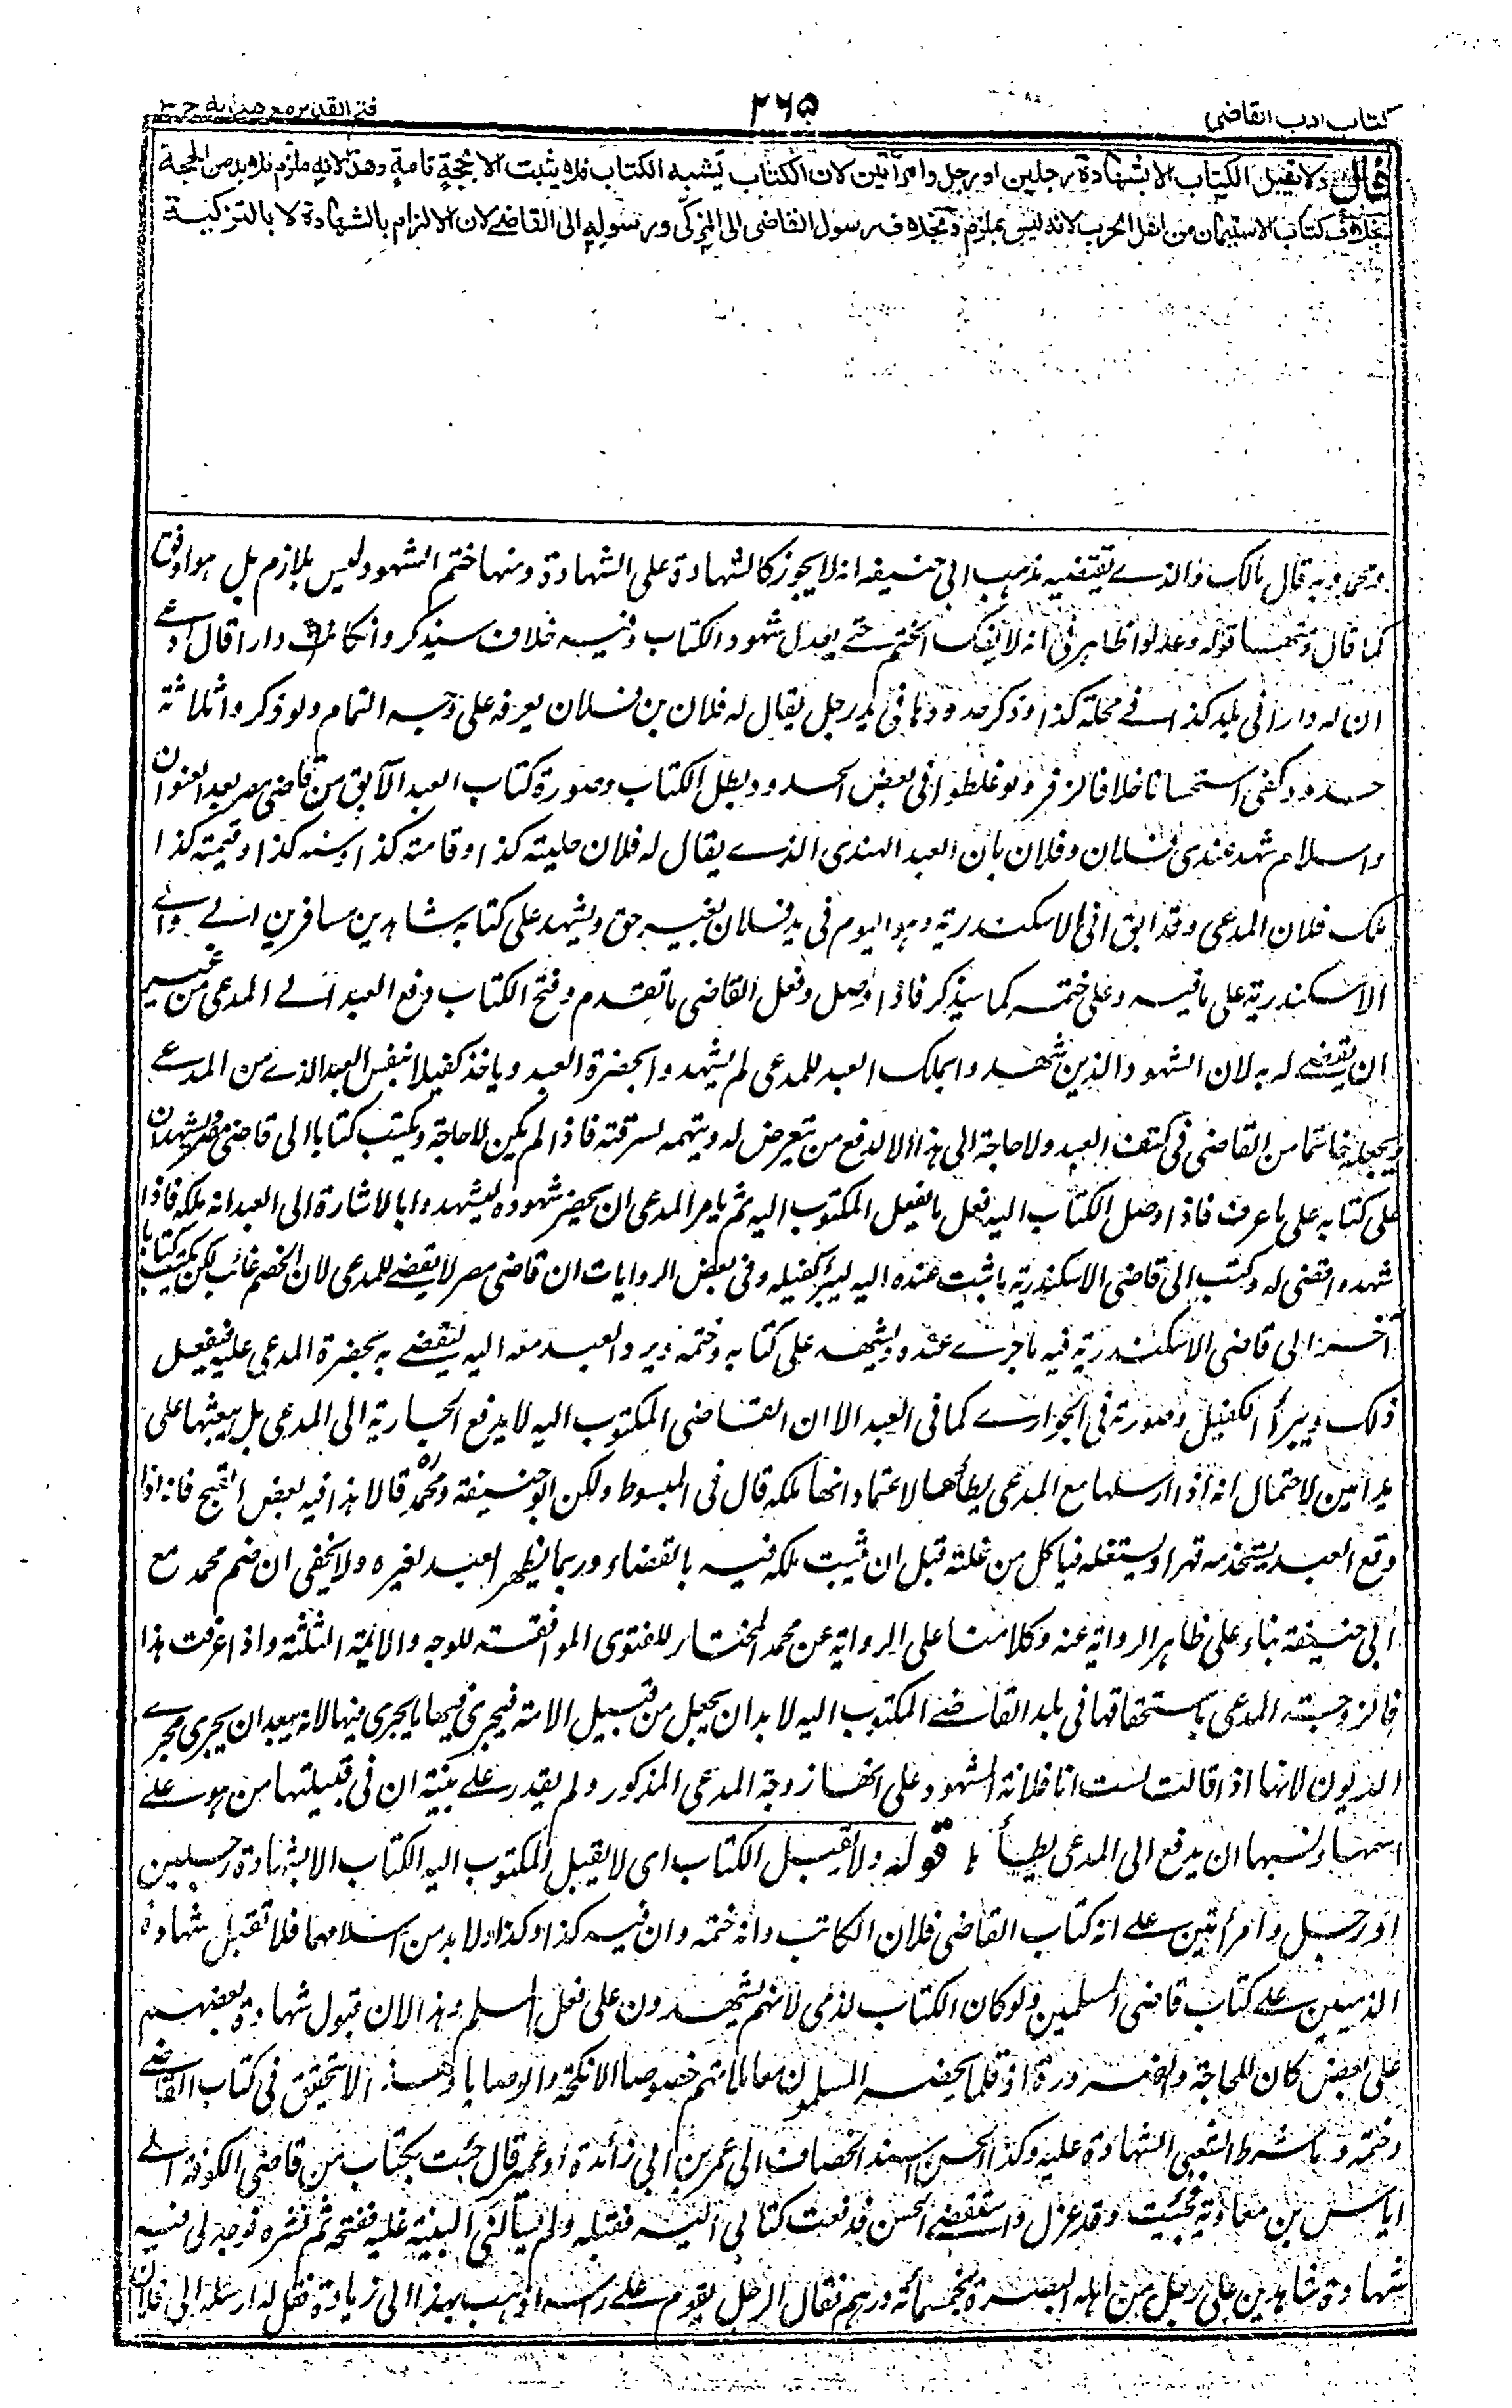 كتاب ادب القاضی
۲۶۵
فتح القدیر مع هدایه ج ۳
قال ولا يقبل الكتاب الا بشهادة رجلين او رجل وامرأتين لان الكتاب يشبه الكتاب فلا يثبت الا بحجة تامة وهذا لانه ملزم فلا بد من الحجة
بخلاف كتاب الاستيمان من اهل الحرب لانه ليس بملزم وبخلاف رسول القاضى الى المزكى ورسوله الى القاضے لان الالزام بالشهادة لا بالتزكية
ومحمد وبه قال مالك والذے يقتضيه مذهب ابى حنيفه انه لا يجوز كالشهادة على الشهادة ومنها ختم الشهود ليس بلازم بل هو اوفق
كما قال ومنها قوله وعدلوا ظاهر فى انه لا يفك الختم حتے يعدل شهود الكتاب وفيه خلاف سيذكر وان كانت دارا قال ادعے
ان له دارا فى بلد كذا فے محلة كذا وذكر حدودها فى يد رجل يقال له فلان بن فلان يعرفه على وجه التمام ولو ذكروا ثلاثة
حدود كفى استحسانا خلافا لزفر ولو غلطوا فى بعض الحدود بطل الكتاب وصورة كتاب العبد الآبق من قاضى مصر بعد العنوان
والسلام شهد عندى فلان وفلان بان العبد الهندى الذے يقال له فلان حليته كذا وقامته كذا وسنه كذا وقيمته كذا
ملك فلان المدعى وقد ابق الى الاسكندرية وهو اليوم فى يد فلان بغير حق ويشهد على كتابه شاهدين مسافرين الے والے
الاسكندرية على ما فيه وعلى ختمه كما سيذكر فاذا وصل وفعل القاضى ما تقدم وفتح الكتاب دفع العبد الے المدعى من غير
ان يقضے له به لان الشهود الذين شهدوا بملك العبد للمدعى لم يشهدوا بحضرة العبد وياخذ كفيلا بنفس العبد الذے من المدعے
ويجعل خاتما من القاضى فى كتف العبد ولا حاجة الى هذا الا لدفع من يتعرض له ويتهمه بسرقته فاذا لم يكن لا حاجة ويكتب كتابا الى قاضى مصر ويشهدان
على كتابه على ما عرف فاذا وصل الكتاب اليه فعل ما يفعل المكتوب اليه ثم يامر المدعى ان يحضر شهوده ليشهدوا بالاشارة الى العبد انه ملكه فاذا
شهدوا قضى له وكتب الى قاضى الاسكندرية بما ثبت عنده اليه ليبرأ كفيله وفى بعض الروايات ان قاضى مصر لا يقضے للمدعى لان الخصم غائب لكن يكتب كتابا
آخر الى قاضى الاسكندرية فيه ما جرے عنده ويشهد على كتابه وختمه ويرد العبد معه اليه ليقضے به بحضرة المدعى عليه فيفعل
ذلك ويبرأ الكفيل وصورته فى الجوارے كما فى العبد الا ان القاضى المكتوب اليه لا يدفع الجارية الى المدعى بل يبعثها على
يد امين لاحتمال انه اذا ارسلها مع المدعى يطأها لاعتماد انها ملكه قال فى المبسوط ولكن ابو حنيفة ومحمد ره قالا هذا فيه بعض القبح فانه اذا
وقع العبد يستخدمه قهرا ويستغله فياكل من غلته قبل ان يثبت ملكه فيه بالقضاء وربما يظهر العبد لغيره ولا يخفى ان ضم محمد مع
ابى حنيفة بناء على ظاهر الرواية عنه وكلامنا على الرواية عن محمد المختار للفتوى الموافقة للوجه والائمة الثلثة واذا عرفت هذا
فالزوجية المدعى باستحقاقها فى بلد القاضے المكتوب اليه لا بد ان يجعل من قبيل الامة فيجرى فيها ما يجرى فيها لانه يبعد ان يجرى مجرے
الديون لانها اذا قالت لست انا فلانة الشهود على انها زوجة المدعى المذكور ولم يقدر علے بينة ان فى قبيلتها من هو علے
اسمها ونسبها ان يدفع الى المدعى يطأها قوله ولا يقبل الكتاب اى لا يقبل المكتوب اليه الكتاب الا بشهادة رجلين
او رجل وامرأتين علے انه كتاب القاضى فلان الكاتب وانه ختمه وان فيه كذا وكذا ولا بد من اسلامهما فلا تقبل شهادة
الذميين علے كتاب قاضى المسلمين ولو كان الكتاب لذمى لانهم يشهدون على فعل المسلم وهذا لان قبول شهادة بعضهم
على بعض كان للحاجة والضرورة اذ قلما يحضر المسلمون معاملاتهم خصوصا الانكحة والوصايا وهذا لا يتحقق فى كتاب القاضے
وختمه وباشتراط الشعبى الشهادة عليه وكذا الحسن اسند الخصاف الى عمر بن ابى زائدة او عمير قال جئت بكتاب من قاضى الكوفة الے
اياس بن معاوية فجئت وقد عزل واستقضے الحسن فدفعت كتابى اليه فقبله ولم يسألنى البينة عليه ففتحه ثم نشره فوجد لى فيه
شهادة شاهدين على رجل من اهل البصرة بخمسمائة درهم فقال الرجل يقوم علے راسه اذهب بهذا الى زياد فقل له ارسله الى فلان